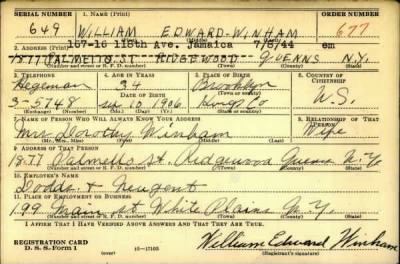 SERIAL NUMBER 1. NAME (Print) ORDER NUMBER
649 WILLIAM EDWARD WINHAM 677
2. ADDRESS (Print) 167-16 118th Ave. Jamaica 7/8/44 em
1877 PALMETTO ST. RIDGEWOOD QUEENS N.Y.
(Number and street or R. F. D. number) (Town) (County) (State)
3. TELEPHONE 4. AGE IN YEARS 5. PLACE OF BIRTH 6. COUNTRY OF CITIZENSHIP
Hegeman 34 Brooklyn
DATE OF BIRTH (Town or county)
3-5748 10 1906 Kings Co U.S.
(Exchange) (Number) (Mo.) (Day) (Yr.) (State or country)
7. NAME OF PERSON WHO WILL ALWAYS KNOW YOUR ADDRESS 8. RELATIONSHIP OF THAT PERSON
Mrs Dorothy Winham Wife
(Mr., Mrs., Miss) (First) (Middle) (Last)
9. ADDRESS OF THAT PERSON
1877 Palmetto St. Ridgewood Queens N.Y.
(Number and street or R. F. D. number) (Town) (County) (State)
10. EMPLOYER'S NAME
Dodds & Nugent
11. PLACE OF EMPLOYMENT OR BUSINESS
199 Main St White Plains N.Y.
(Number and street or R. F. D. number) (Town) (County) (State)
I AFFIRM THAT I HAVE VERIFIED ABOVE ANSWERS AND THAT THEY ARE TRUE.
REGISTRATION CARD
D. S. S. Form 1 (over) 16-17105 William Edward Winham
(Registrant's signature)